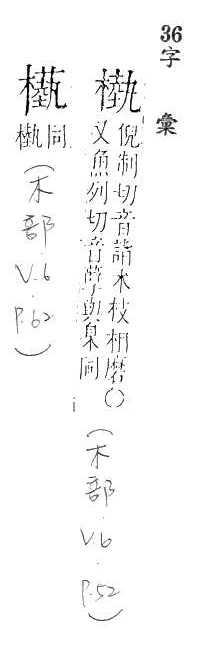 36字彙
槸
倪制切音詣木枝相磨○
又魚列切音孼與臬同
(木部 V.6 P.52)
同槸
(木部 V.6 P.62)